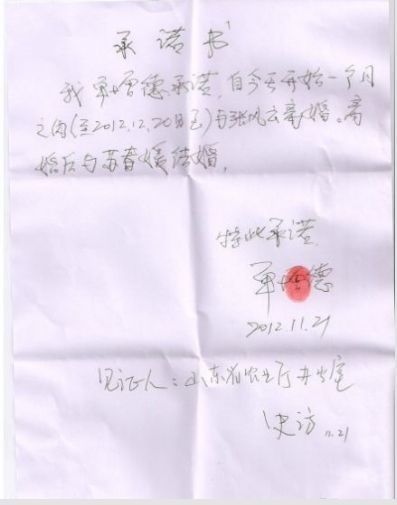 承诺书
我单增德承诺,自今天开始一个月
之内(至2012.12.20日止)与张凤云离婚。离
婚后与苏春媛结婚,
特此承诺.
单增德
2012.11.21
见证人:山东省农业厅井出庭
史访 11.21